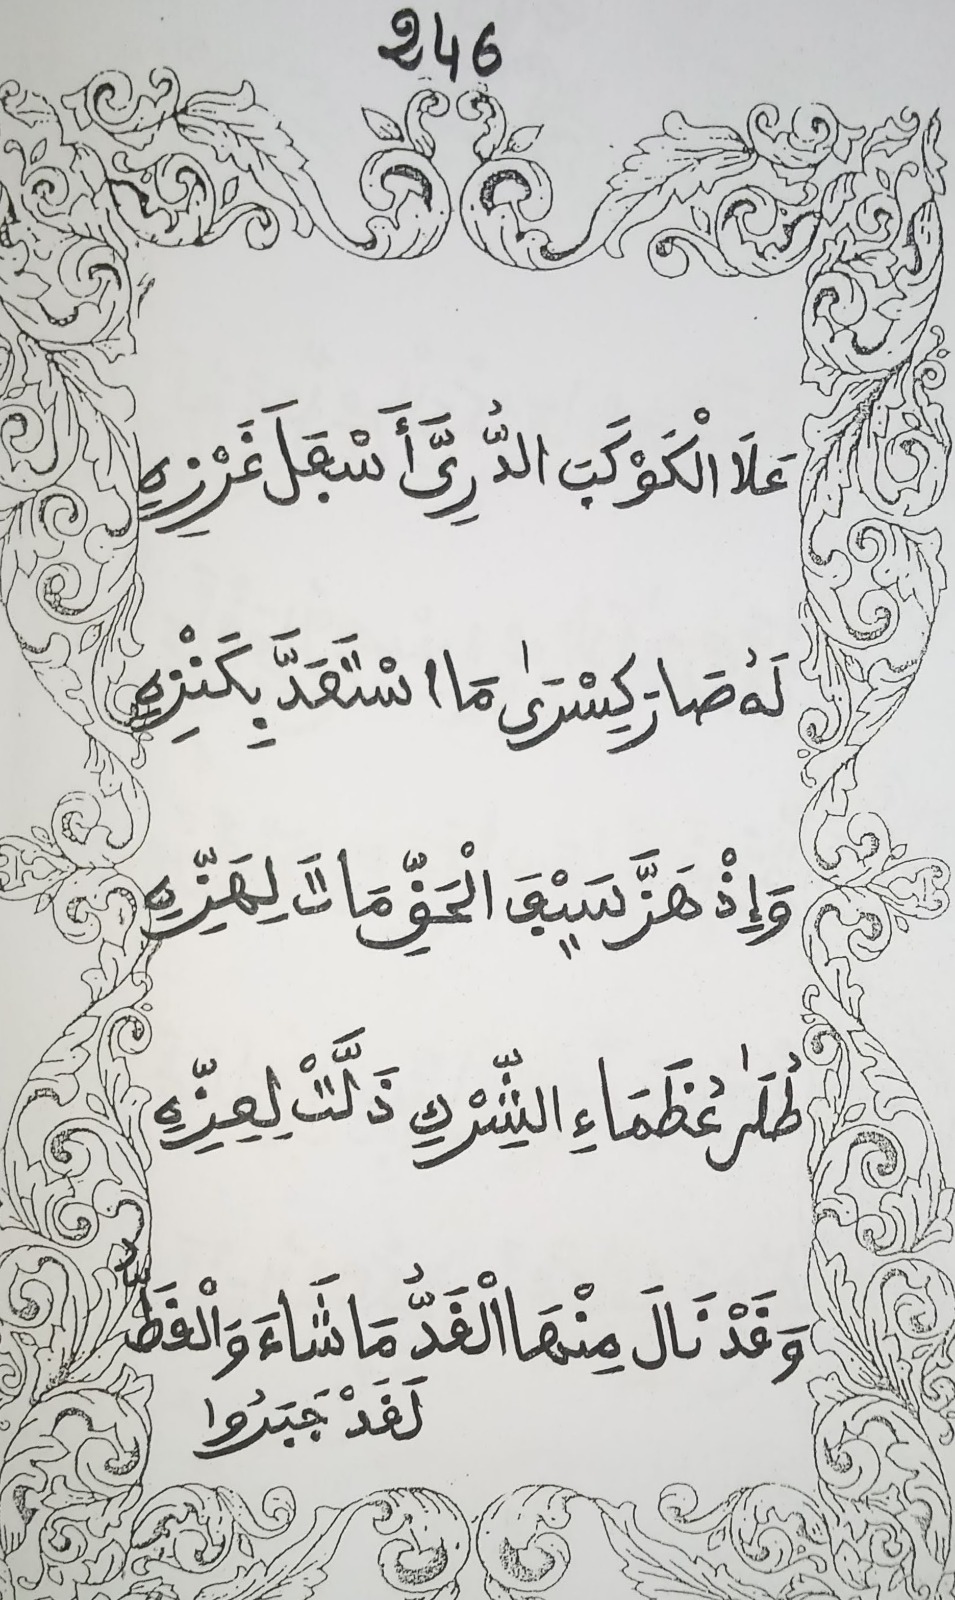 246
عَلَا الْكَوْكَبَ الدُّرِيَّ أَسْفَلَ غَرْزِهِ
لَهُ صَارَ كِسْرَىٰ مَا اسْتَعَدَّ بِكَنْزِهِ
وَإِذْ هَزَّ سَيْفَ الْحَقِّ مَاتَ لِهَزِّهِ
طُلَىٰ عُظَمَاءِ الشِّرْكِ ذَلَّتْ لِعِزِّهِ
وَقَدْ نَالَ مِنْهَا الْقَدُّ مَا شَاءَ وَالْقَطُّ
لَقَدْ جَبَرُوا